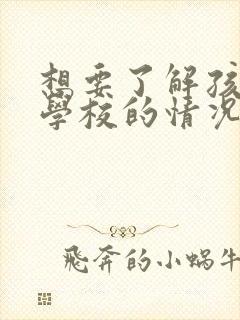 想要了解孩
學校的情況
飛奔的小蝸牛